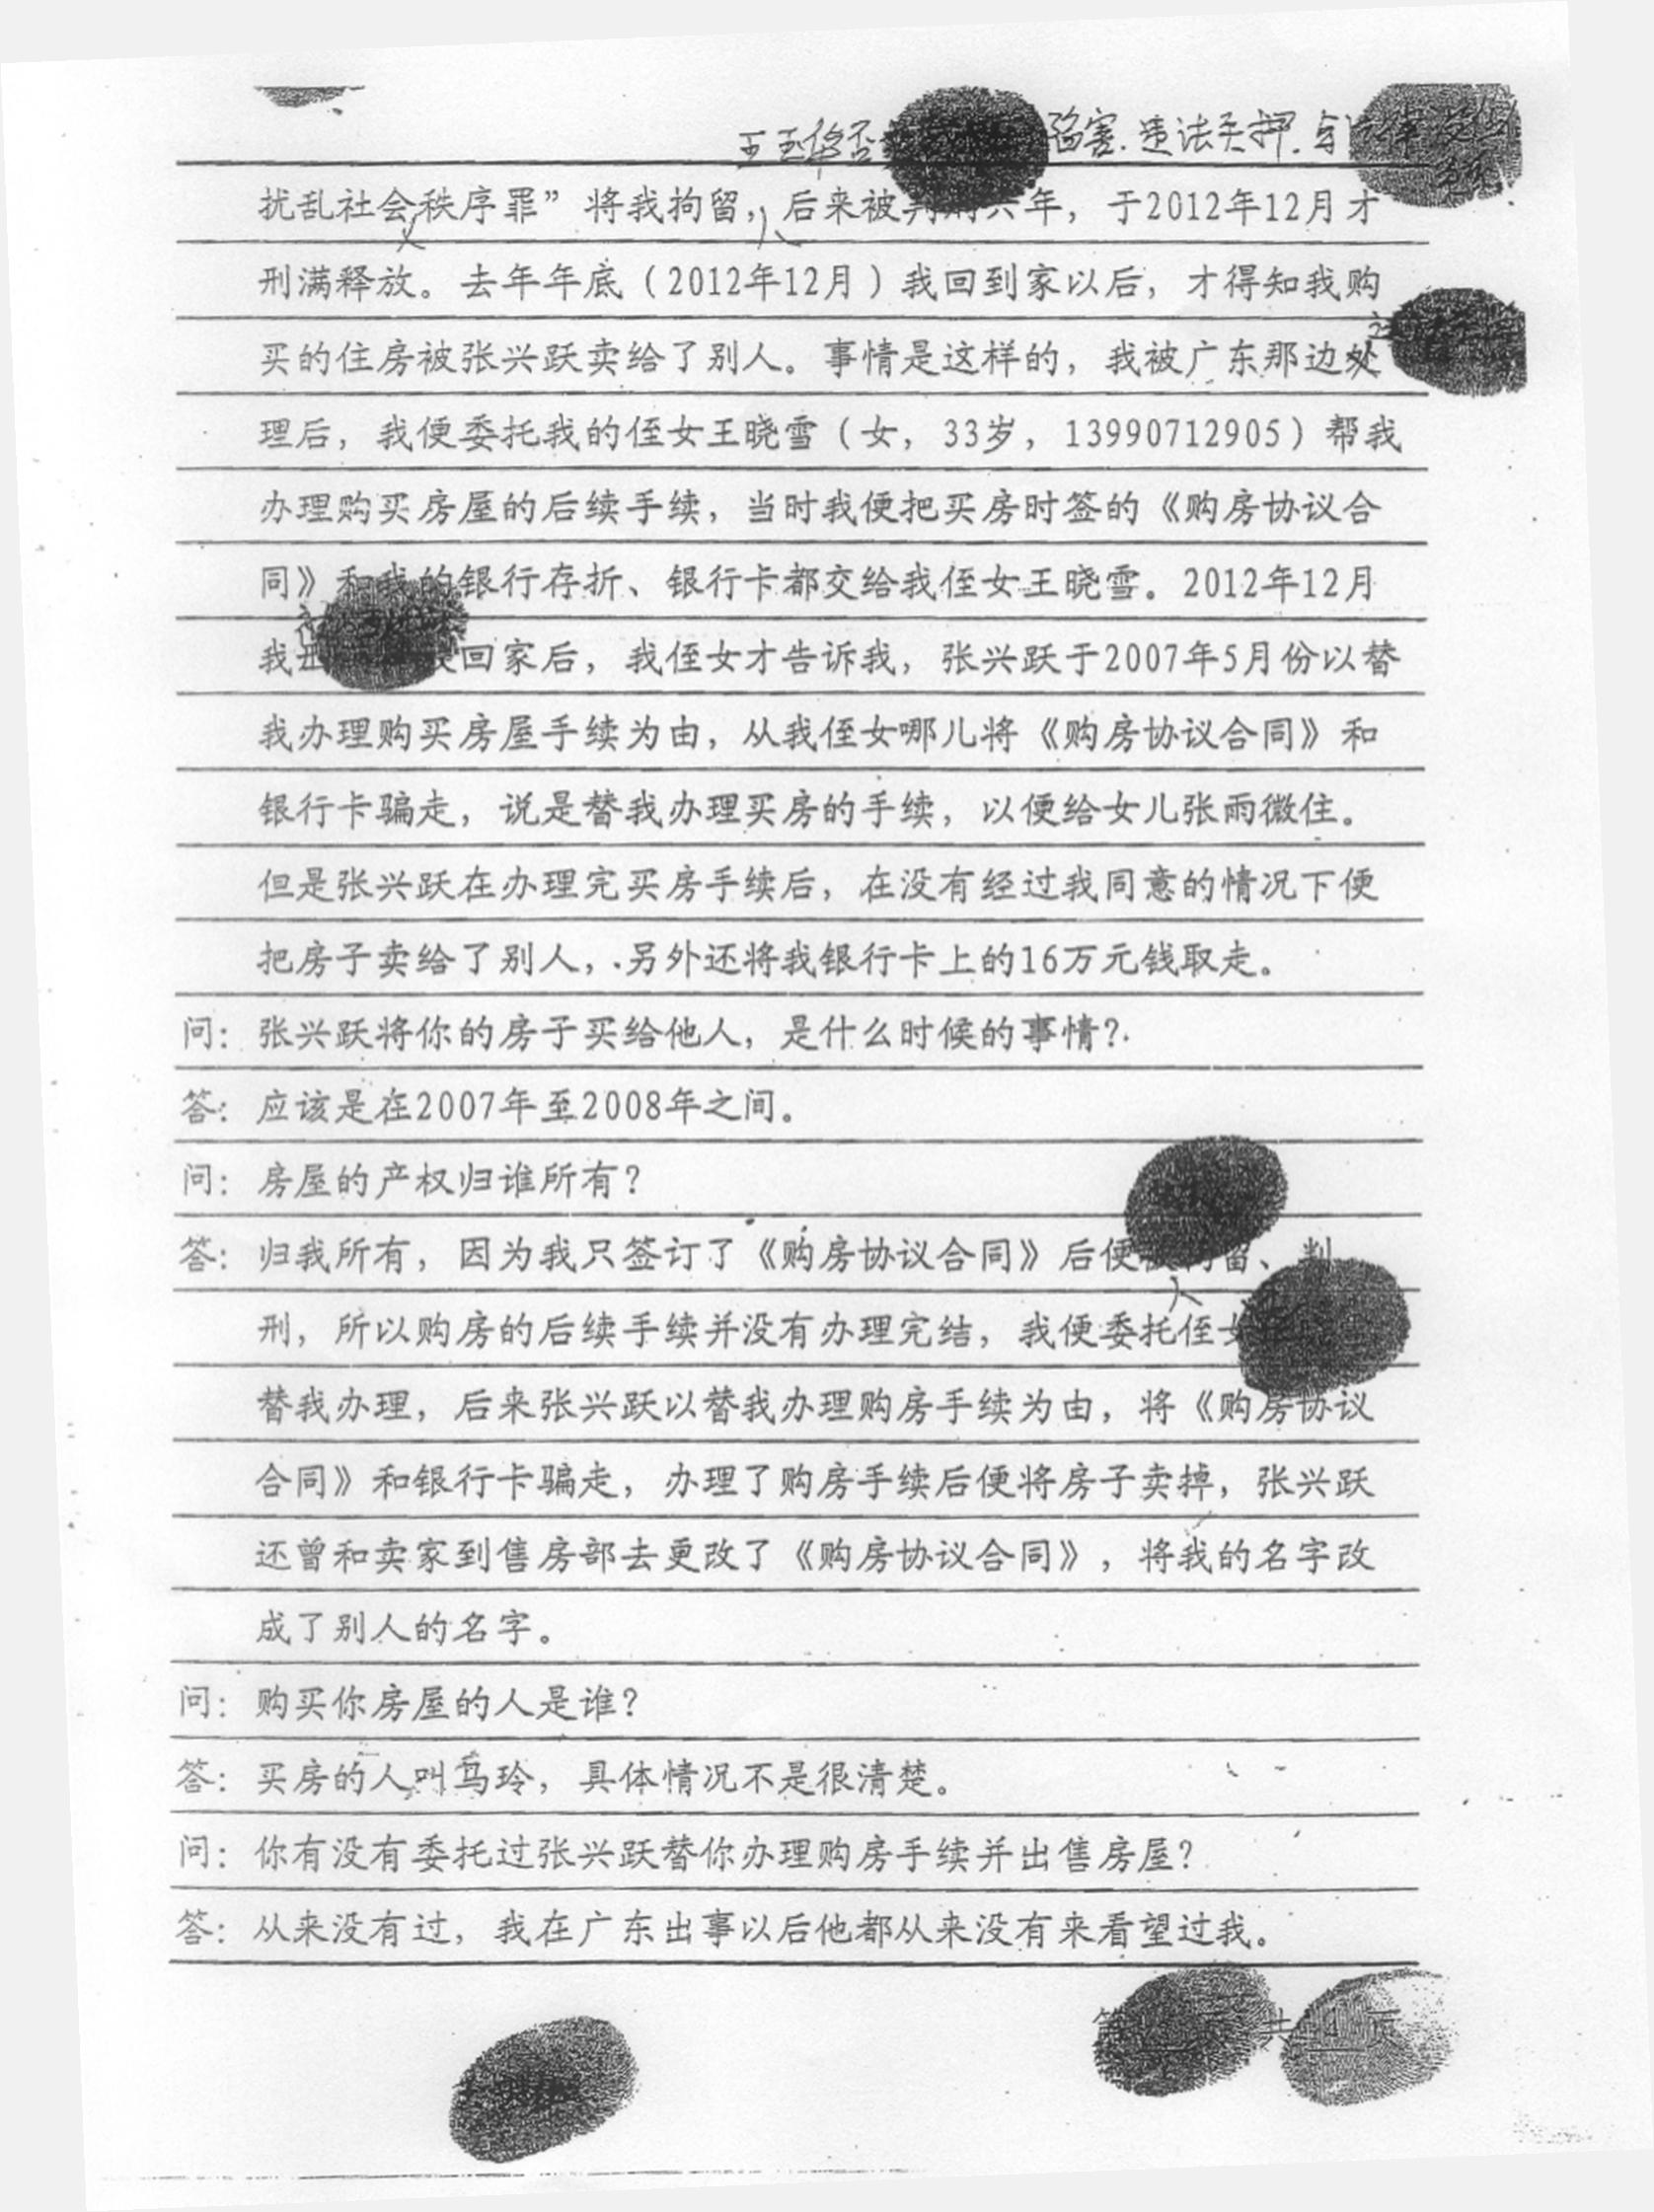 陷害.违法关押.
扰乱社会秩序罪”将我拘留,后来被判刑六年,于2012年12月才
刑满释放。去年年底(2012年12月)我回到家以后,才得知我购
买的住房被张兴跃卖给了别人。事情是这样的,我被广东那边处
理后,我便委托我的侄女王晓雪(女,33岁,13990712905)帮我
办理购买房屋的后续手续,当时我便把买房时签的《购房协议合
同》和我的银行存折、银行卡都交给我侄女王晓雪。2012年12月
我 回家后,我侄女才告诉我,张兴跃于2007年5月份以替
我办理购买房屋手续为由,从我侄女哪儿将《购房协议合同》和
银行卡骗走,说是替我办理买房的手续,以便给女儿张雨微住。
但是张兴跃在办理完买房手续后,在没有经过我同意的情况下便
把房子卖给了别人,另外还将我银行卡上的16万元钱取走。
问:张兴跃将你的房子买给他人,是什么时候的事情?
答:应该是在2007年至2008年之间。
问:房屋的产权归谁所有?
答:归我所有,因为我只签订了《购房协议合同》后便 留、判
刑,所以购房的后续手续并没有办理完结,我便委托侄女
替我办理,后来张兴跃以替我办理购房手续为由,将《购房协议
合同》和银行卡骗走,办理了购房手续后便将房子卖掉,张兴跃
还曾和卖家到售房部去更改了《购房协议合同》,将我的名字改
成了别人的名字。
问:购买你房屋的人是谁?
答:买房的人叫 玲,具体情况不是很清楚。
问:你有没有委托过张兴跃替你办理购房手续并出售房屋?
答:从来没有过,我在广东出事以后他都从来没有来看望过我。
第 共 页